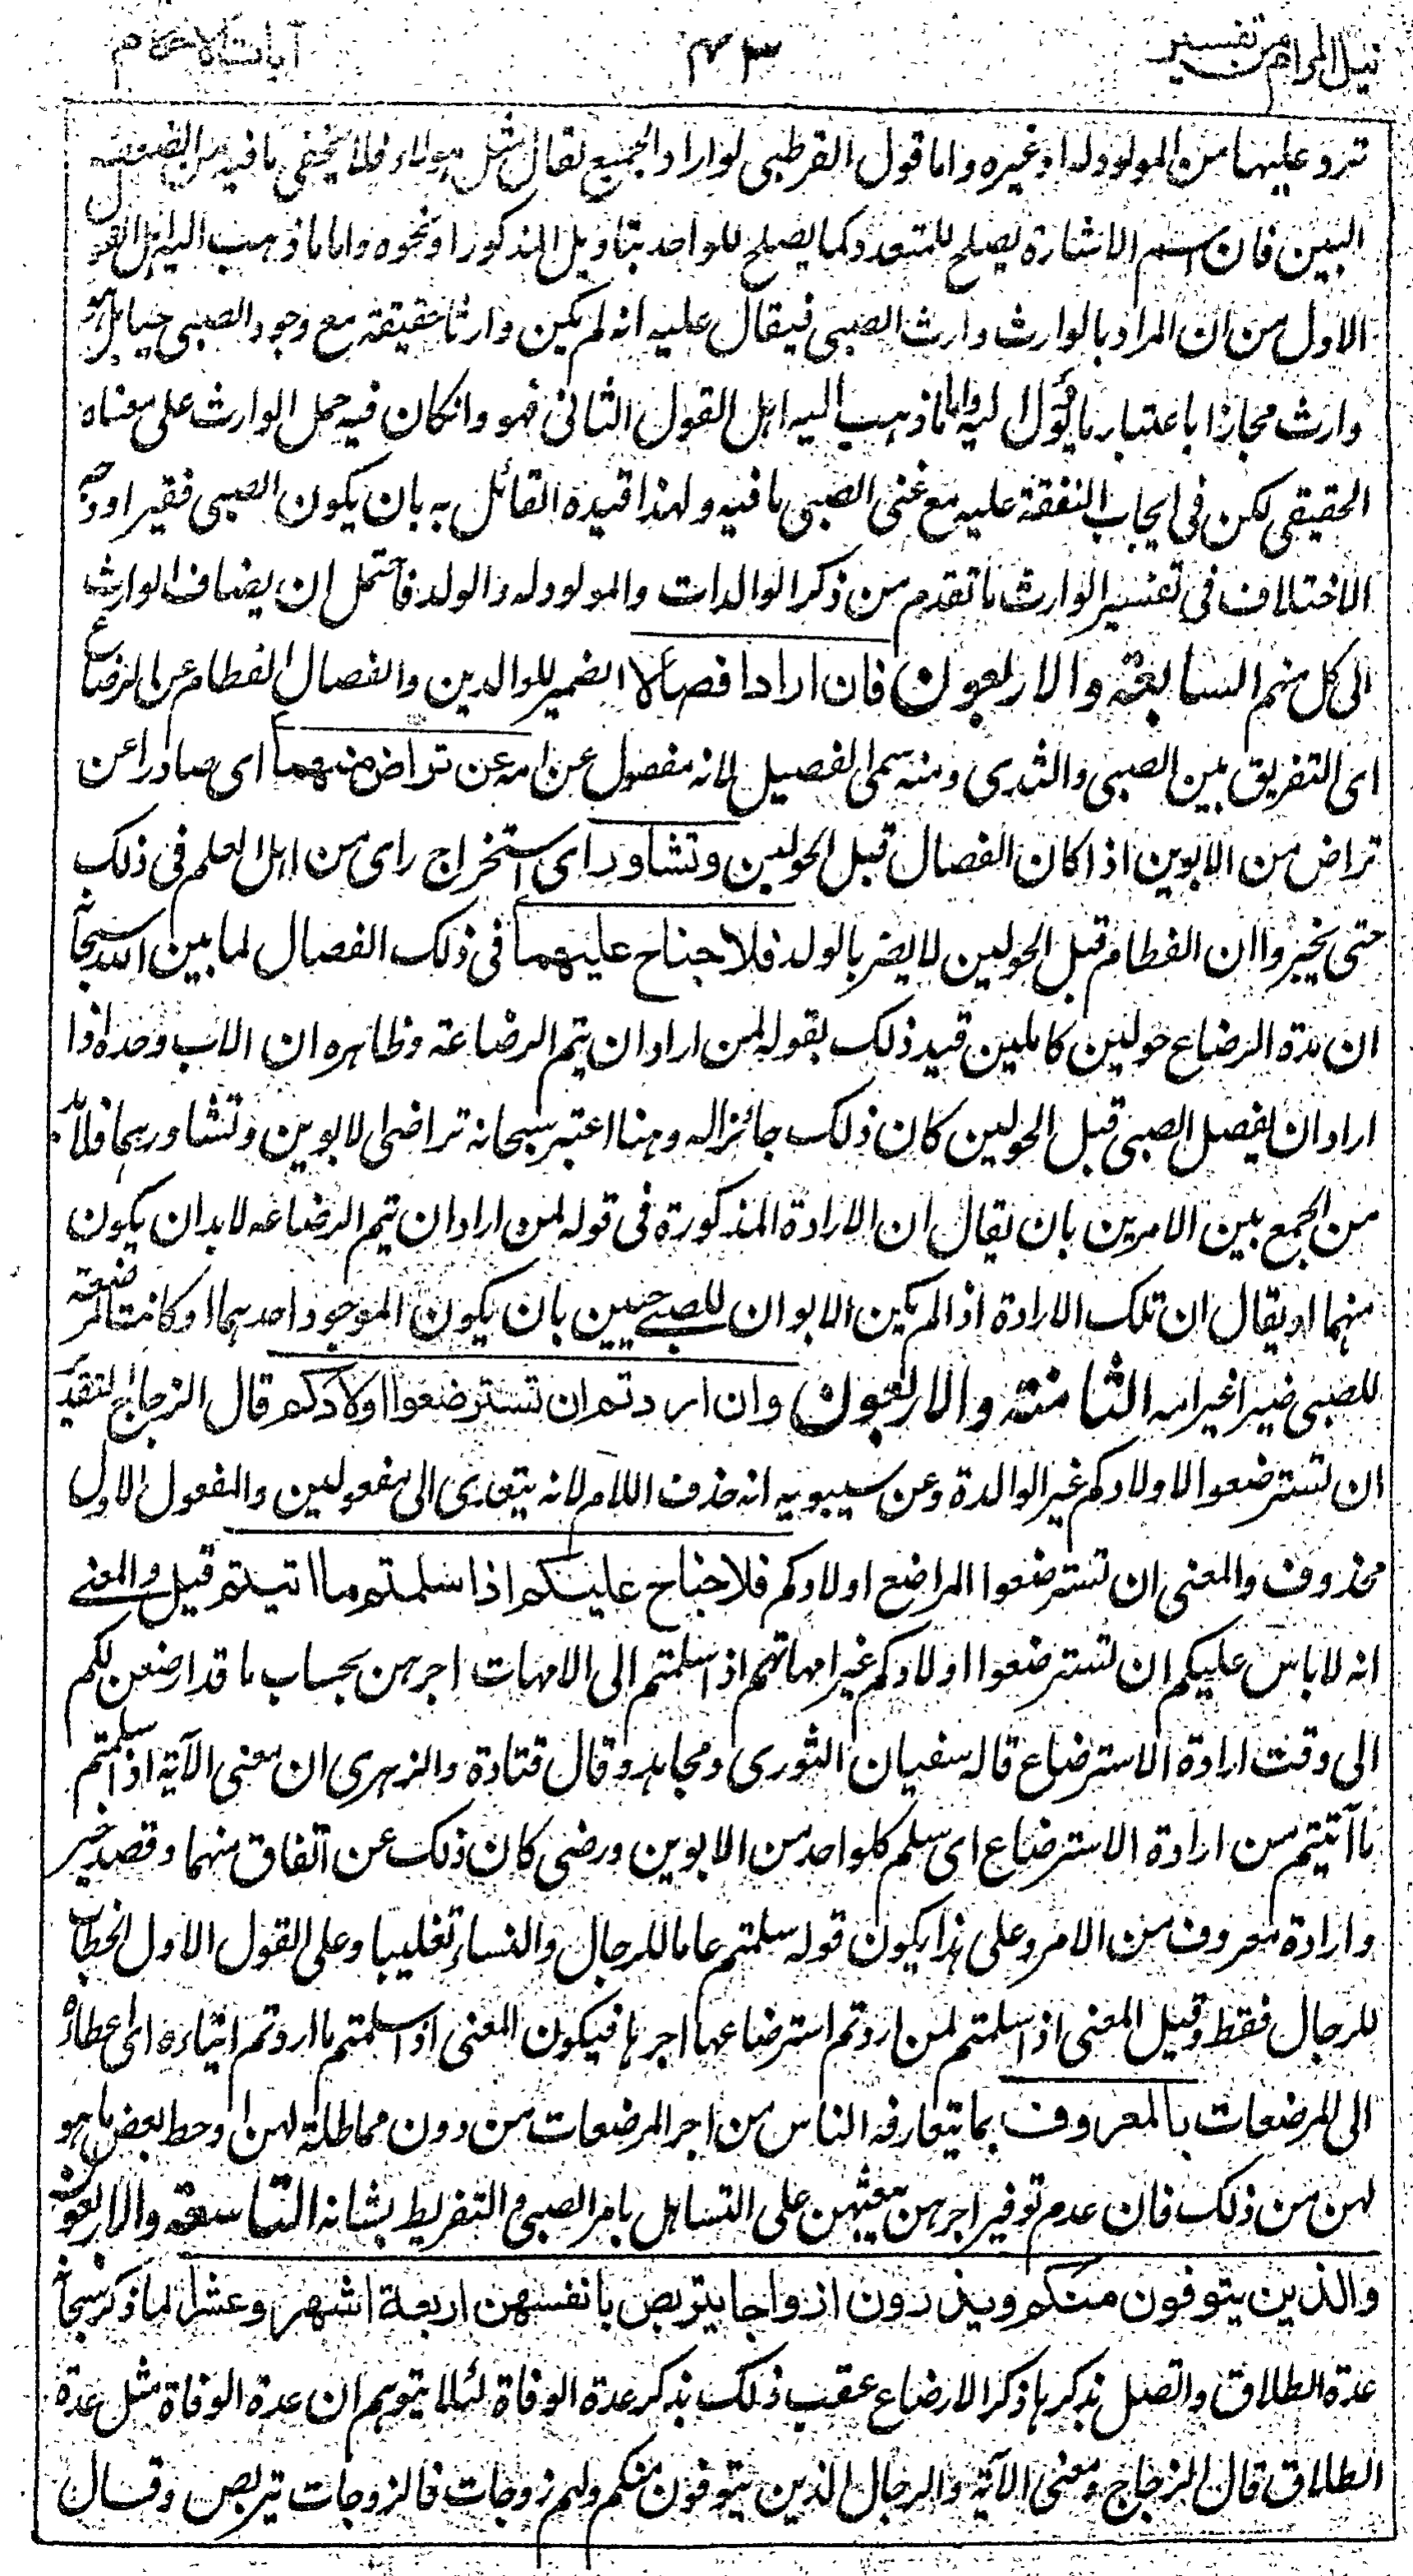 نيل المرام من تفسير
٤٣
آيات الاحكام
ترد عليها من المولود له او غيره واما قول القرطبى لو اراد الجميع لقال مثل هولاء فلا يخفى ما فيه من الضعف
البين فان اسم الاشارة يصلح للمتعدد كما يصلح للواحد بتاويل المذكور او نحوه واما ما ذهب اليه اهل القول
الاول من ان المراد بالوارث وارث الصبى فيقال عليه انه لم يكن وارثا حقيقة مع وجود الصبى حيا بل هو
وارث مجازا باعتبار ما يؤل اليه واما ما ذهب اليه اهل القول الثانى فهو وان كان فيه حمل الوارث على معناه
الحقيقى لكن فى ايجاب النفقة عليه مع غنى الصبى ما فيه ولهذا قيده القائل به بان يكون الصبى فقيرا ووجه
الاختلاف فى تفسير الوارث ما تقدم من ذكر الوالدات والمولود له والولد فاحتمل ان يضاف الوارث
الى كل منهم السابعة والاربعون فان ارادا فصالا الضمير للوالدين والفصال الفطام عن الرضاع
اى التفريق بين الصبى والثدى ومنه سمى الفصيل لانه مفصول عن امه عن تراض منهما اى صادرا عن
تراض من الابوين اذا كان الفصال قبل الحولين وتشاور اى استخراج راى من اهل العلم فى ذلك
حتى يخبروا ان الفطام قبل الحولين لا يضر بالولد فلا جناح عليهما فى ذلك الفصال لما بين الله سبحانه
ان مدة الرضاع حولين كاملين قيد ذلك بقوله لمن اراد ان يتم الرضاعة وظاهره ان الاب وحده اذا
اراد ان يفصل الصبى قبل الحولين كان ذلك جائزا له وهنا اعتبر سبحانه تراضى الابوين وتشاورهما فلا بد
من الجمع بين الامرين بان يقال ان الارادة المذكورة فى قوله لمن اراد ان يتم الرضاعه لا بد ان يكون
منهما او يقال ان تلك الارادة اذا لم يكن الابوان للصبى حيين بان يكون الموجود احدهما او كانت المرضعة
للصبى ضيرا غير امه الثامنة والاربعون وان اردتم ان تسترضعوا اولادكم قال الزجاج التقدير
ان تسترضعوا لاولادكم غير الوالدة وعن سيبويه انه حذف اللام لانه يتعدى الى مفعولين والمفعول الاول
محذوف والمعنى ان تسترضعوا المراضع اولادكم فلا جناح عليكم اذا سلمتم ما اتيتم قيل والمعنى
انه لا باس عليكم ان تسترضعوا اولادكم غير امهاتهم اذا سلمتم الى الامهات اجرهن بحساب ما قد ارضعن لكم
الى وقت ارادة الاسترضاع قاله سفيان الثورى ومجاهد وقال قتادة والزهرى ان معنى الآية اذا سلمتم
ما آتيتم من ارادة الاسترضاع اى سلم كل واحد من الابوين ورضى كان ذلك عن اتفاق منهما وقصد خير
وارادة معروف من الامر وعلى هذا يكون قوله سلمتم عاما للرجال والنساء تغليبا وعلى القول الاول الخطاب
للرجال فقط وقيل المعنى اذا سلمتم لمن اردتم استرضاعها اجرها فيكون المعنى اذا سلمتم ما اردتم ايتاءه اى اعطاءه
الى المرضعات بالمعروف بما يتعارفه الناس من اجر المرضعات من دون مماطلة لهن او حط بعض ما هو
لهن من ذلك فان عدم توفير اجرهن يبعثهن على التساهل بامر الصبى والتفريط بشانه التاسعة والاربعون
والذين يتوفون منكم ويذرون ازواجا يتربص بانفسهن اربعة اشهر وعشرا لما ذكر سبحانه
عدة الطلاق واتصل بذكرها ذكر الارضاع عقب ذلك بذكر عدة الوفاة لئلا يتوهم ان عدة الوفاة مثل عدة
الطلاق قال الزجاج ومعنى الآية والرجال الذين يتوفون منكم ولهم زوجات فالزوجات يتربص وقال